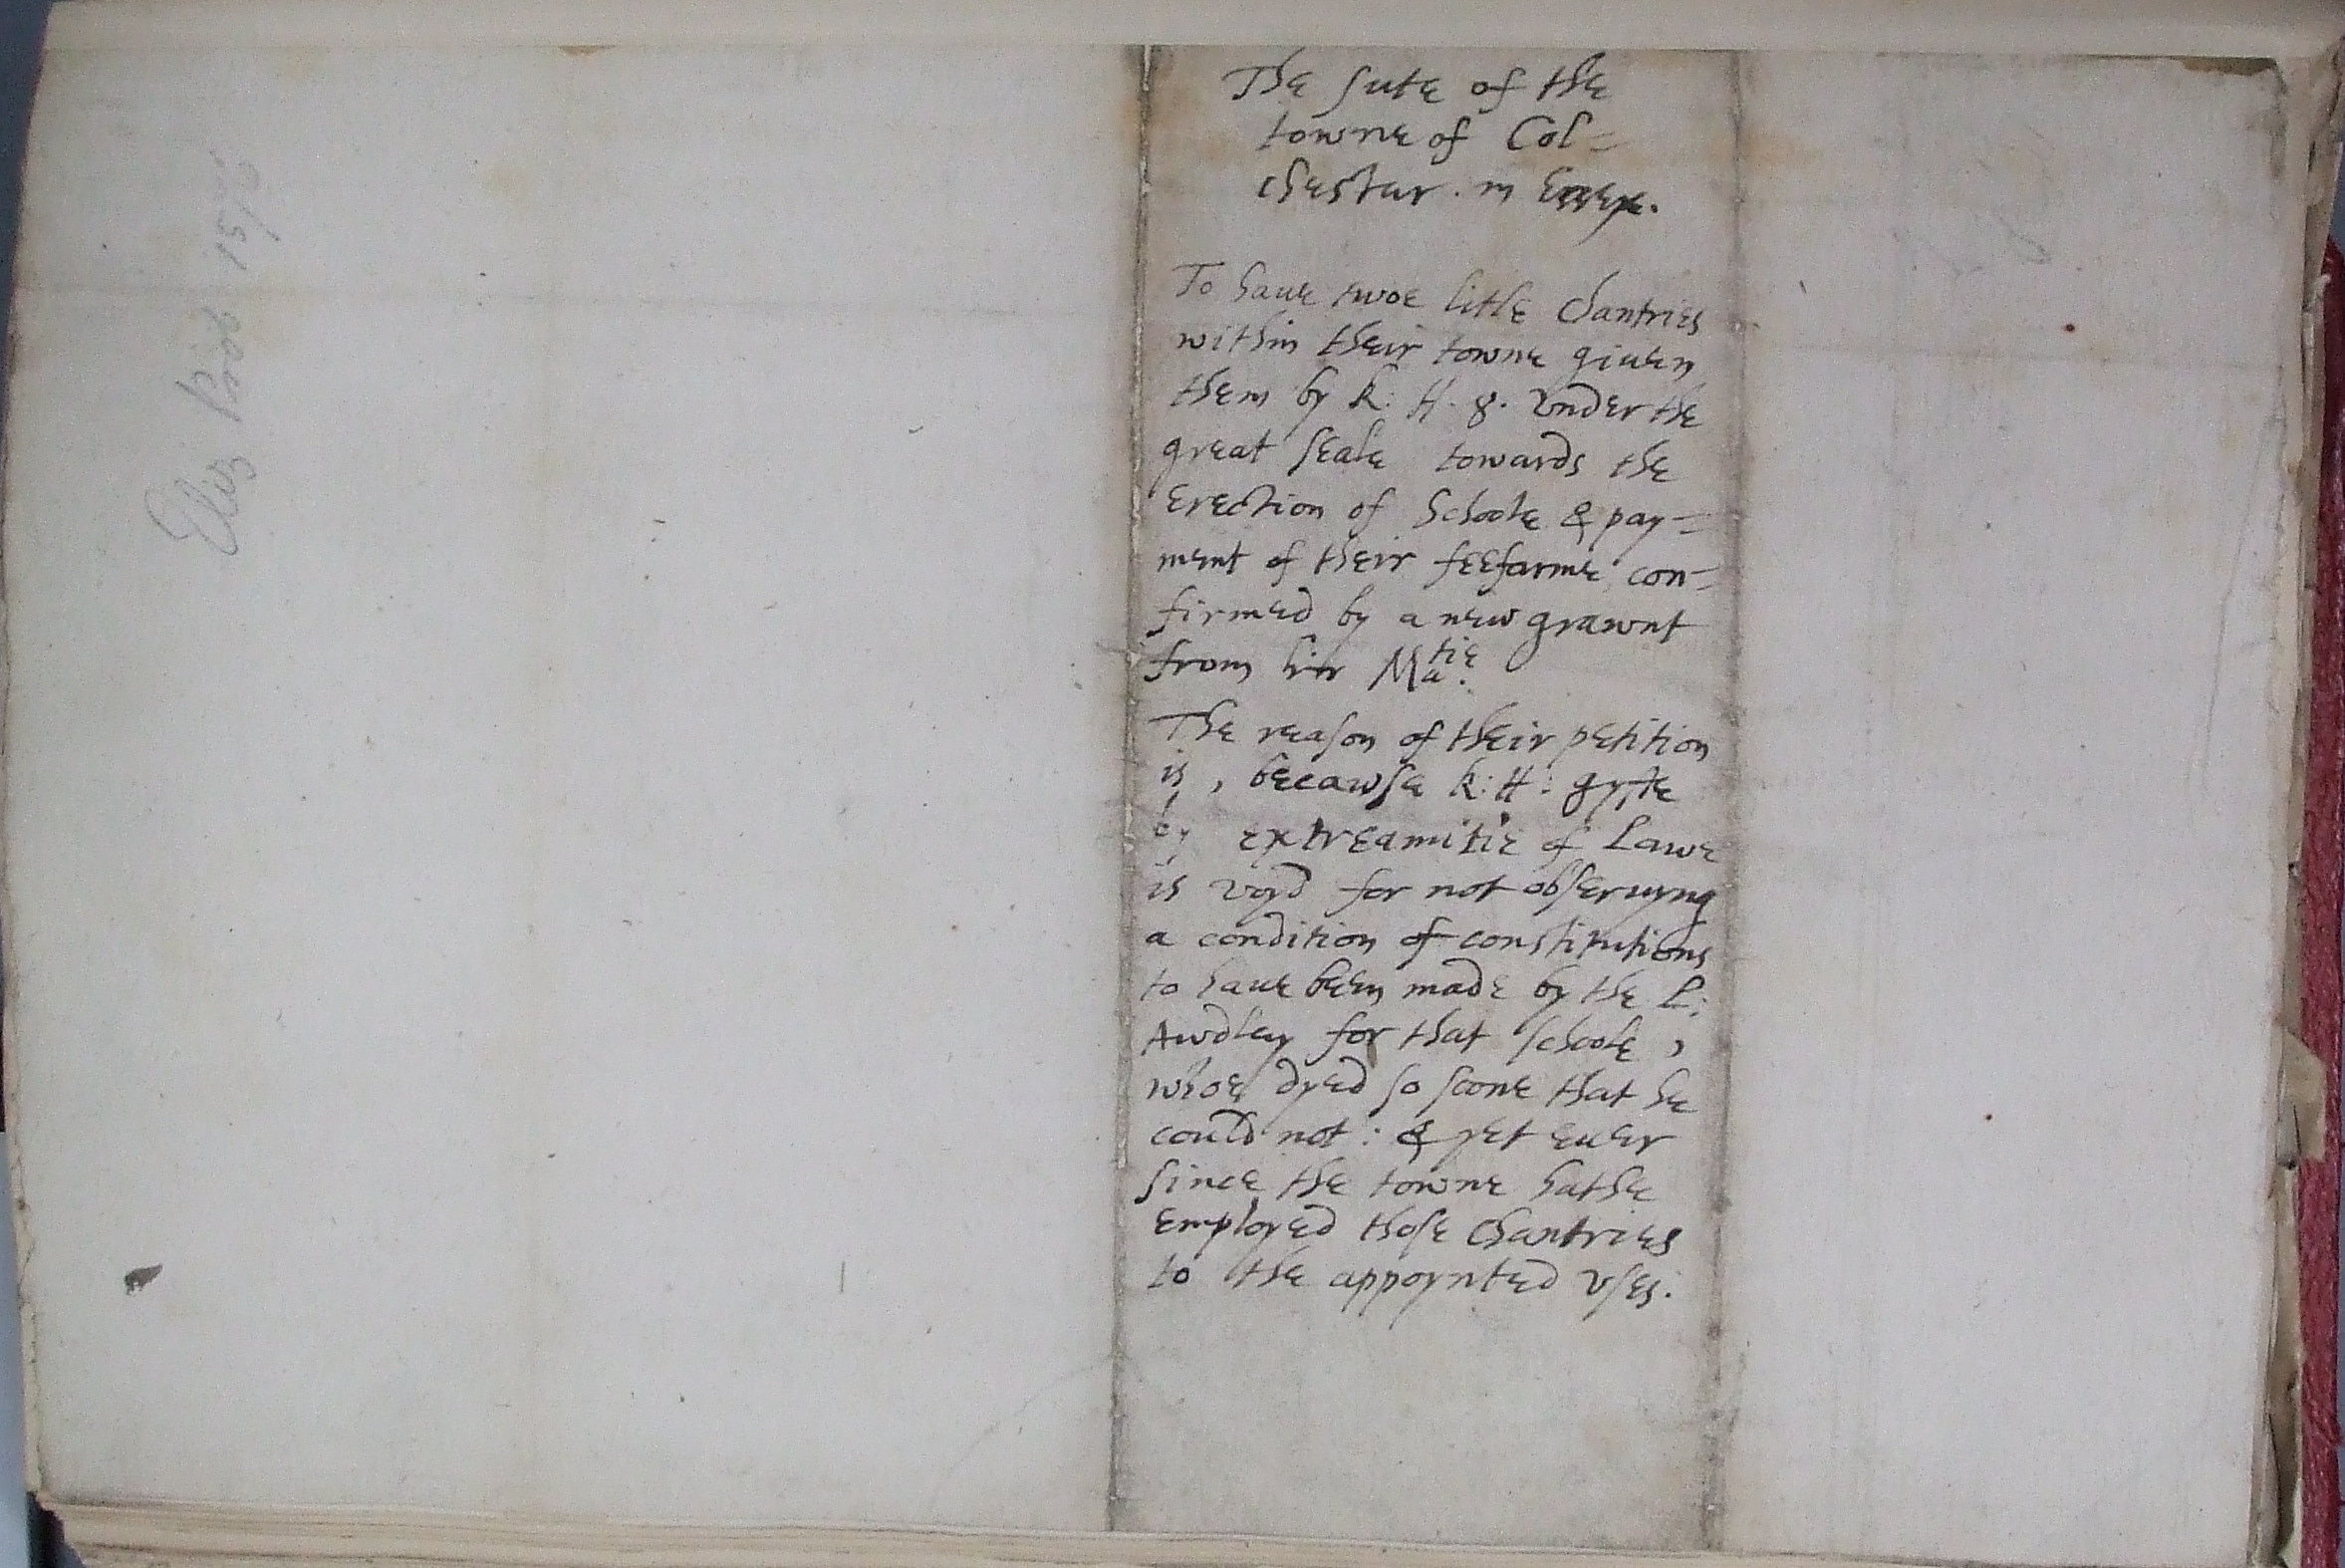 The sute of the
towne of Col=
chester. in Essex.
To haue twoe litle chantries
within their towne giuen
them by k: H. 8. vnder the
great seale towards the
erection of schoole & pay=
ment of their feefarme, con=
firmed by a new grawnt
from hir Ma^tie.
The reason of their petition
is, becawse k: H: gyfte
by extreamitie of Lawe
is voyd for not obseruyng
a condition of constitutions
to haue been made by the L:
Awdley for that schoole,
whoe dyed so soone that he
could not: & yet euer
since the towne hathe
employed those chantries
to the appoynted vses.